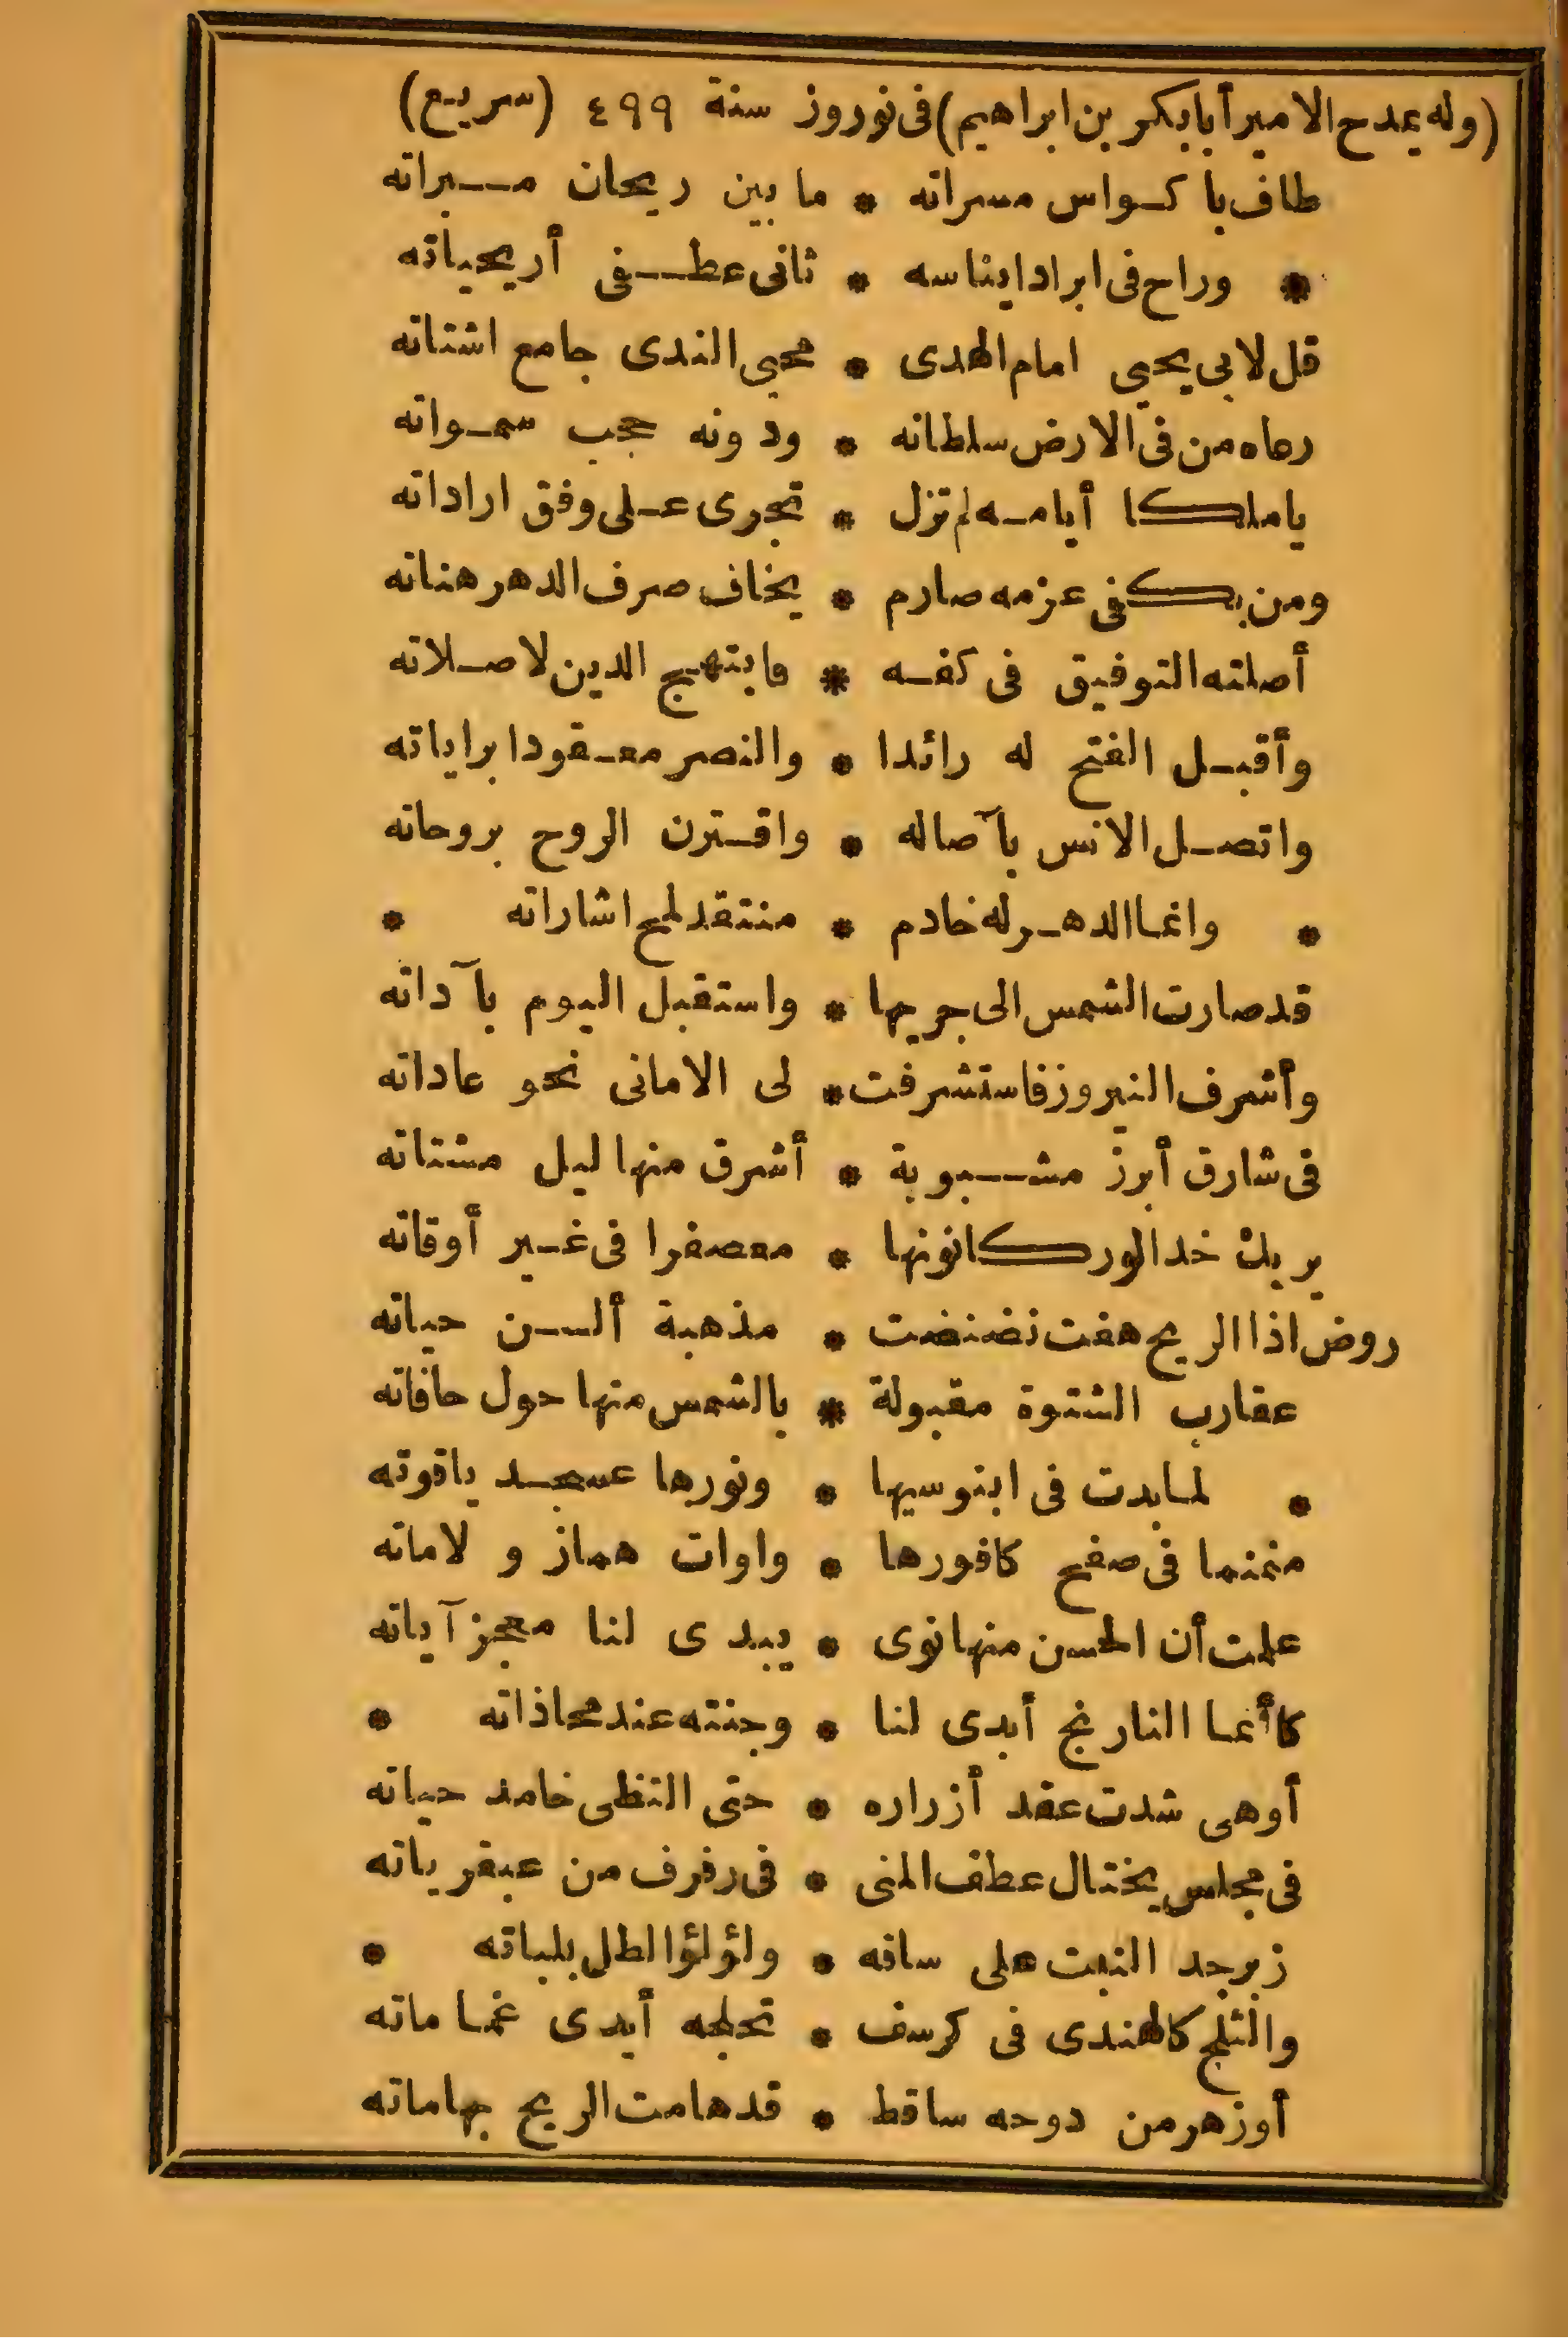 (وله يمدح الامير أبابكر بن ابراهيم) فى نوروز سنة ٤٩٩ (سريع)
طاف باكواس مسراته * ما بين ريحان مبراته
* وراح فى ابرادايناسه * ثانى عطفى أريحياته
قل لابى يحيى امام الهدى * محيى الندى جامع اشتاته
رعاه من فى الارض سلطانه * ودونه حجب سمواته
ياملكا أيامه لم تزل * تجرى على وفق اراداته
ومن بكفى عزمه صارم * يخاف صرف الدهر هناته
أصلته التوفيق فى كفه * فابتهج الدين لاصلاته
وأقبل الفتح له رائدا * والنصر معقودا براياته
واتصل الانس بآصاله * واقترن الروح بروحاته
* وانما الدهر له خادم * منتقد لمح اشاراته *
قد صارت الشمس الى جريها * واستقبل اليوم بآداته
وأشرف النيروز فاستشرفت * لى الامانى نحو عاداته
فى شارق أبرز مشبوبة * أشرق منها ليل مشتاته
يريك خد الورد كانونها * معصفرا فى غير أوقاته
روض اذا الريح هفت نضنضت * مذهبة ألسن حياته
عقارب الشتوة مقبولة * بالشمس منها حول حافاته
* لما بدت فى ابنوسيها * ونورها عسجد ياقوته
منمنما فى صفح كافورها * واوات هماز و لاماته
علمت أن الحسن منها نوى * يبدى لنا معجز آياته
كأنما النارنج أبدى لنا * وجنته عند محاذاته *
أوهى شدت عقد أزراره * حتى التظى خامد حياته
فى مجلس يختال عطف المنى * فى رفرف من عبقرياته
زبرجد النبت على ساقه * ولؤلؤ الطل بلباته *
والثلج كالهندى فى كرسف * تحلجه أيدى غماماته
أوزهر من دوحه ساقط * قد هامت الريح بهاماته